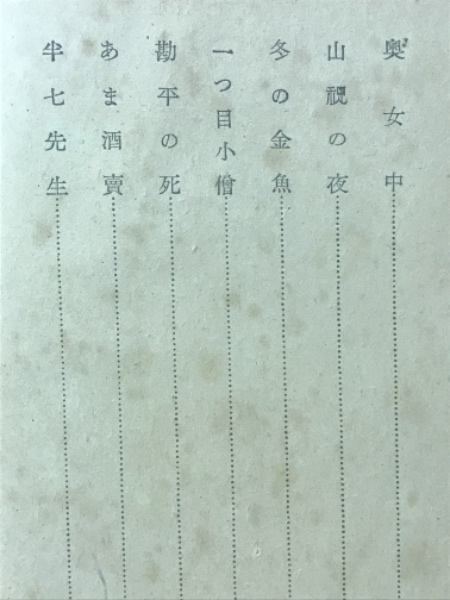 奧女中
山祝の夜
冬の金魚
一つ目小僧
勘平の死
あま酒賣
半七先生